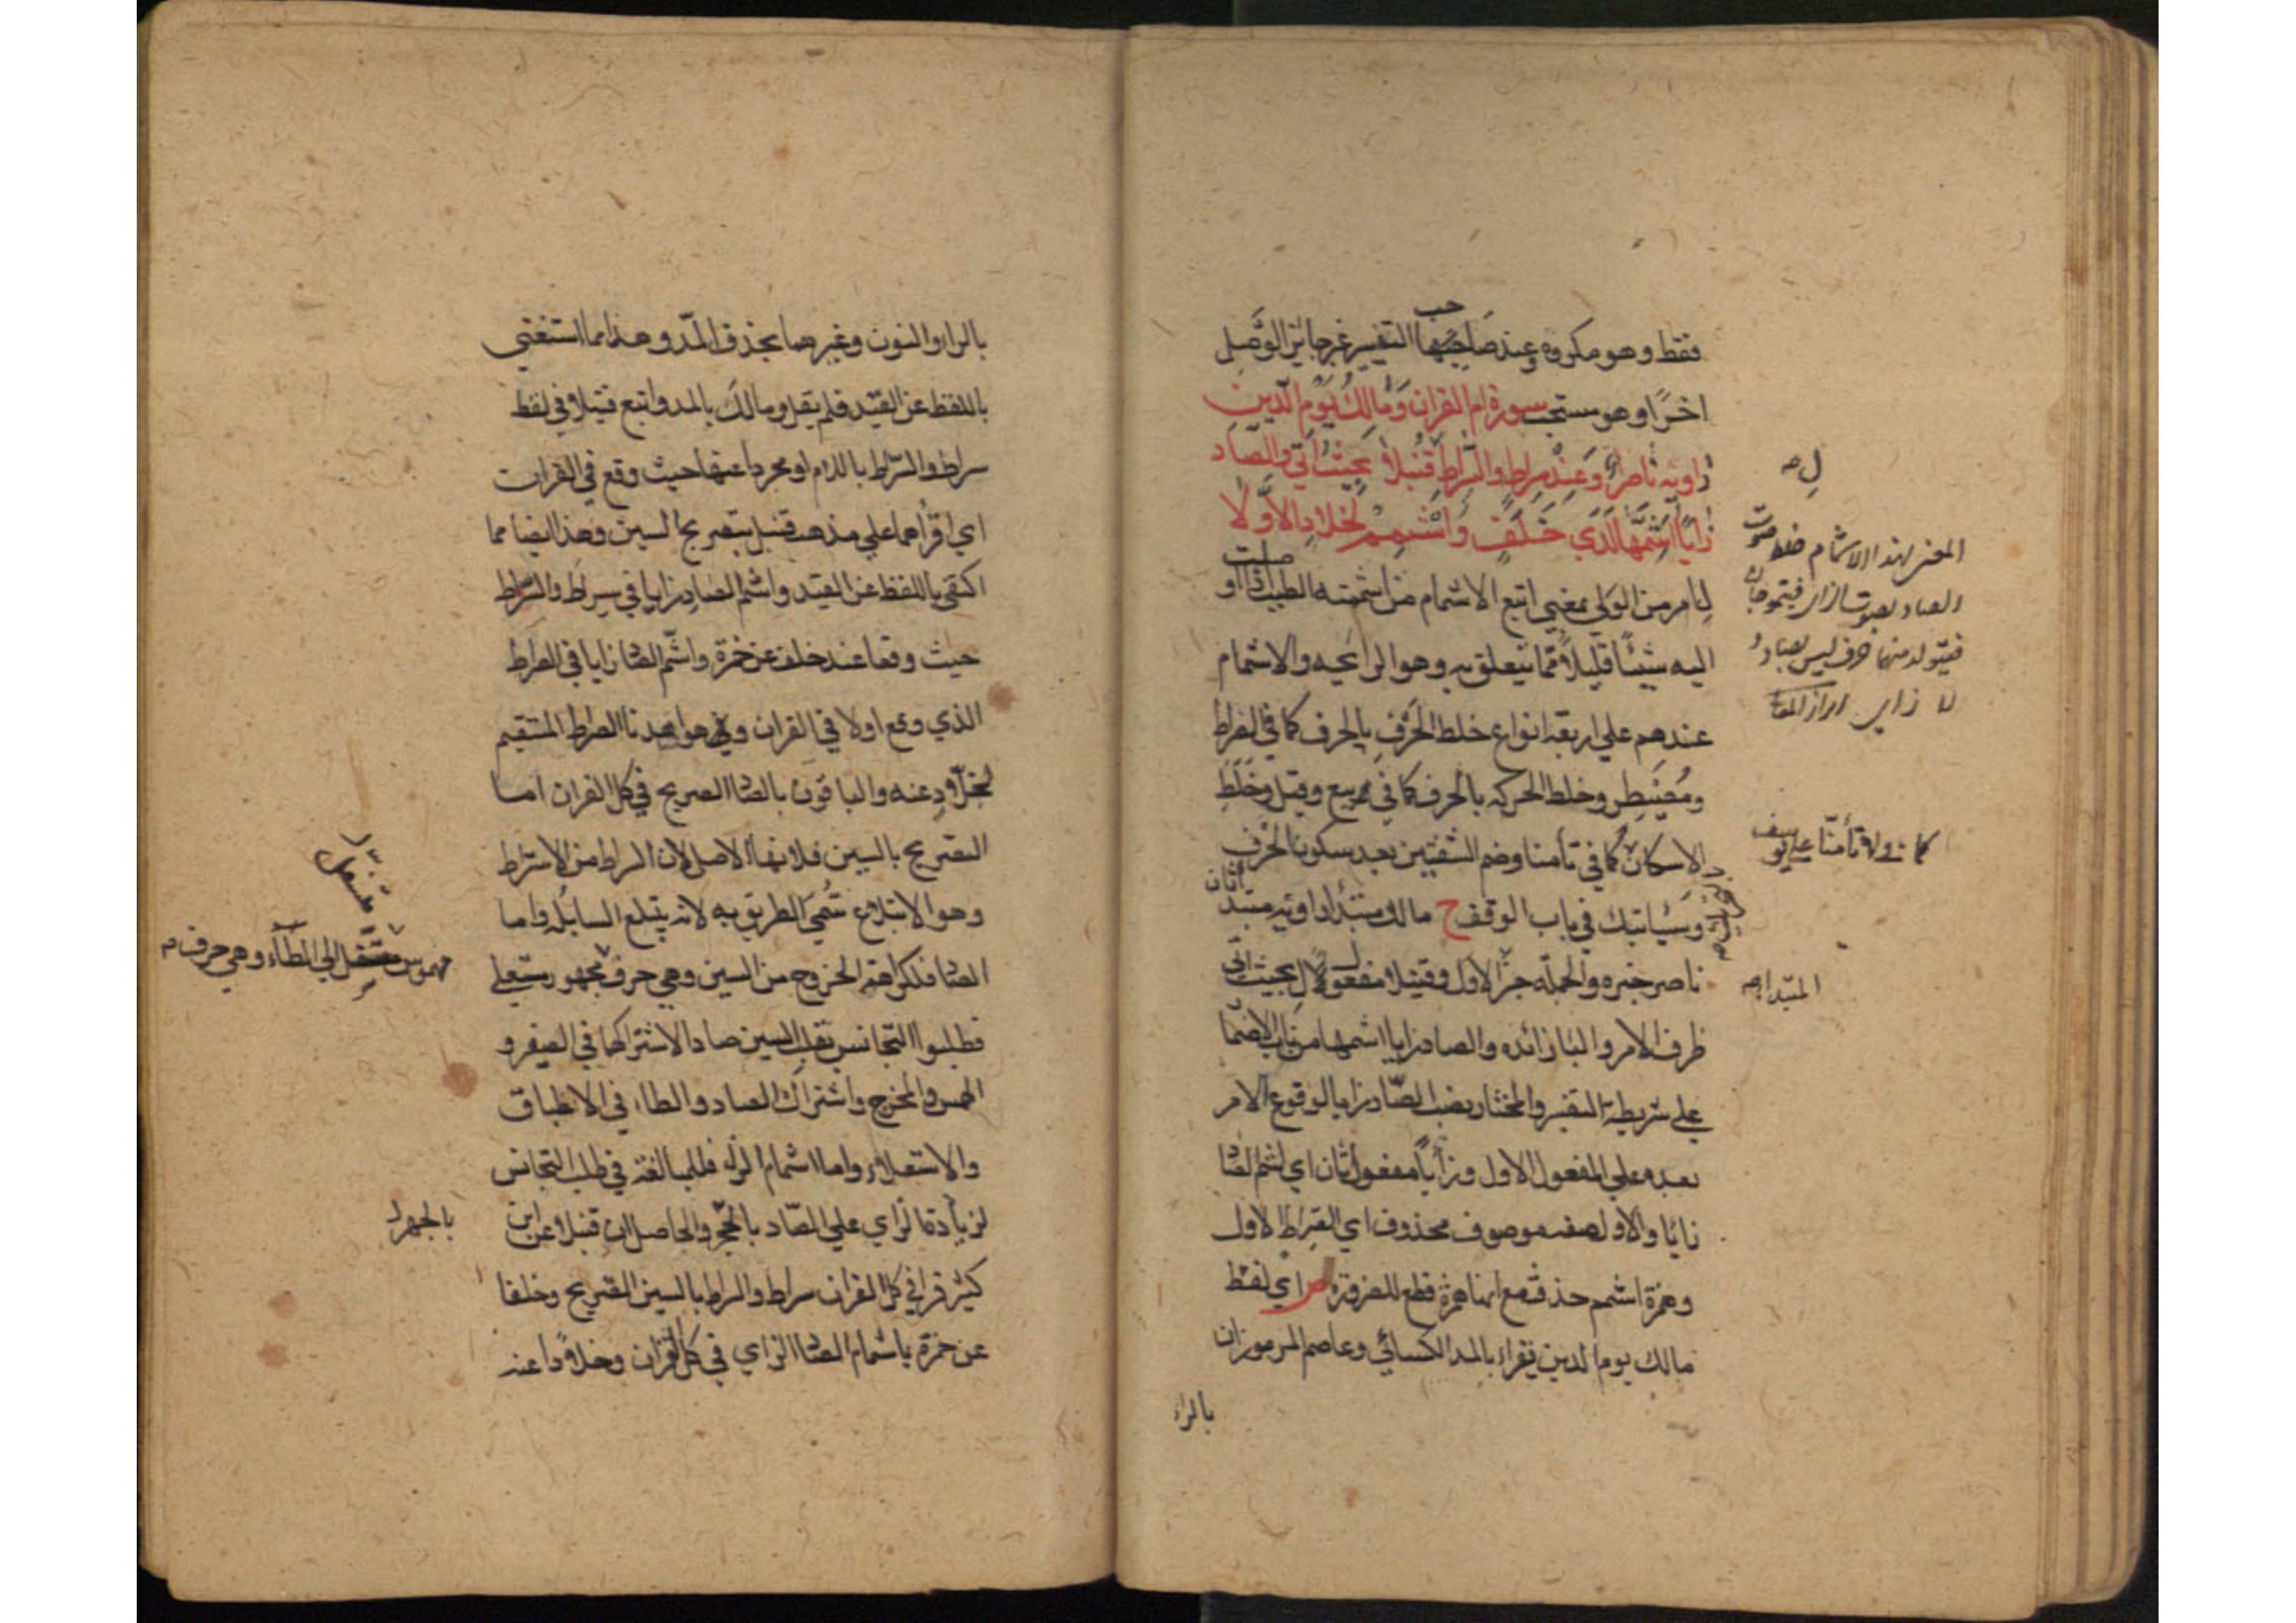 فقط وهو مكروه وعند صاحب التيسير غير جائز الوصل
اخرًا وهو مستحب سورة ام القران وَمَالِكِ يَوْمِ الدِّينِ
رَاوِيه نَاصِرٌ وَعِنْدَ سِرَاطِ والسِّرَاطِ قُنْبُلًا بِحَيْثُ اَتَى والصَّادَ
زَايًا اَشِمَّهَا لَدَى خَلَفٍ وَاشْمِمْ لِخَلَّادِ الاَوَّلَا
ل امر من الولي بمعنى اتبع الاشمام من اشممته الطيب اذا اوصلت
اليه شيئًا قليلًا مما يتعلق به وهو الرائحه والاشمام
عندهم علي اربعة انواع خلط الحرف بالحرف كما في الصراط
ومُصَيْطِر وخلط الحركه بالحركه كما في بيع وقيل وخلط
الاسكان كما في تأمنا وضم الشفتين بعد سكون الحرف
وسياتيك في باب الوقف ح مالك مبتدأ راويه مبتدأ ثان
ناصر خبره والجملة خبر الاول وقنبلا مفعول ل بحيث اتي
ظرف الامر والبا زائده والصاد زايا اشمها من باب الاضما
علي شريطة التفسير والمختار نصب الصاد زايا لوقوع الامر
بعده علي المفعول الاول وزايًا مفعول ثان اي اشم الصا
زايًا والاول صفة موصوف محذوف اي الصراط الاول
وهمزة اشمم حذفت مع انها همزة قطع للضرورة ص اي لفظ
مالك يوم الدين يقراء بالمد الكسائي وعاصم المرموزان
بالراء
ل صه
المعنى بهذا الاشمام خلط صوت
الصاد بصوت الزاي فيتموجان
فيتولد منهما حرف ليس بصاد و
لا زاي
كما في ولا تأمنا علي يوسف
المبتدا صه
بالراء والنون وغيرهما بحذف المد وهذا مما استغني
باللفظ عن القيد فلم يقل ومالك بالمد واتبع قنبلا في لفظ
سراط والسراط باللام او مجردا عنها حيث وقع في القران
اي اقرأهما علي مذهب قنبل بتصريح السين وهذا ايضا مما
اكتفي باللفظ عن القيد واشم الصاد زايا في سراط والسراط
حيث وقعا عند خلف عن حمزة واشم الصا زايا في الصراط
الذي وقع اولا في القران وهو اهدنا الصراط المستقيم
لخلاد عنه والباقون بالصا الصريح في كل القران اما
التصريح بالسين فلانها الاصل لان السراط من الاستراط
وهو الابتلاع سُمي الطريق به لانه يبتلع السابله واما
الصا فلكراهة الخروج من السين وهي حرف مجهور مستعلي
فطلبوا التجانس بقلب السين صادا لاشتراكها في الصفير و
الهمس والمخرج واشتراك الصاد والطاء في الاطباق
والاستعلاء واما اشمام الزاء فللمبالغة في طلب التجانس
لزيادة الزاي علي الصاد بالجهر والحاصل ان قنبلا عن ابن
كثير قرا في كل القران سراط والسراط بالسين الصريح وخلفا
عن حمزة باشمام الصا الزاي في كل القران وخلادا عنه
مهموس مستفل الي الطاء وهي حرف
بالجهر